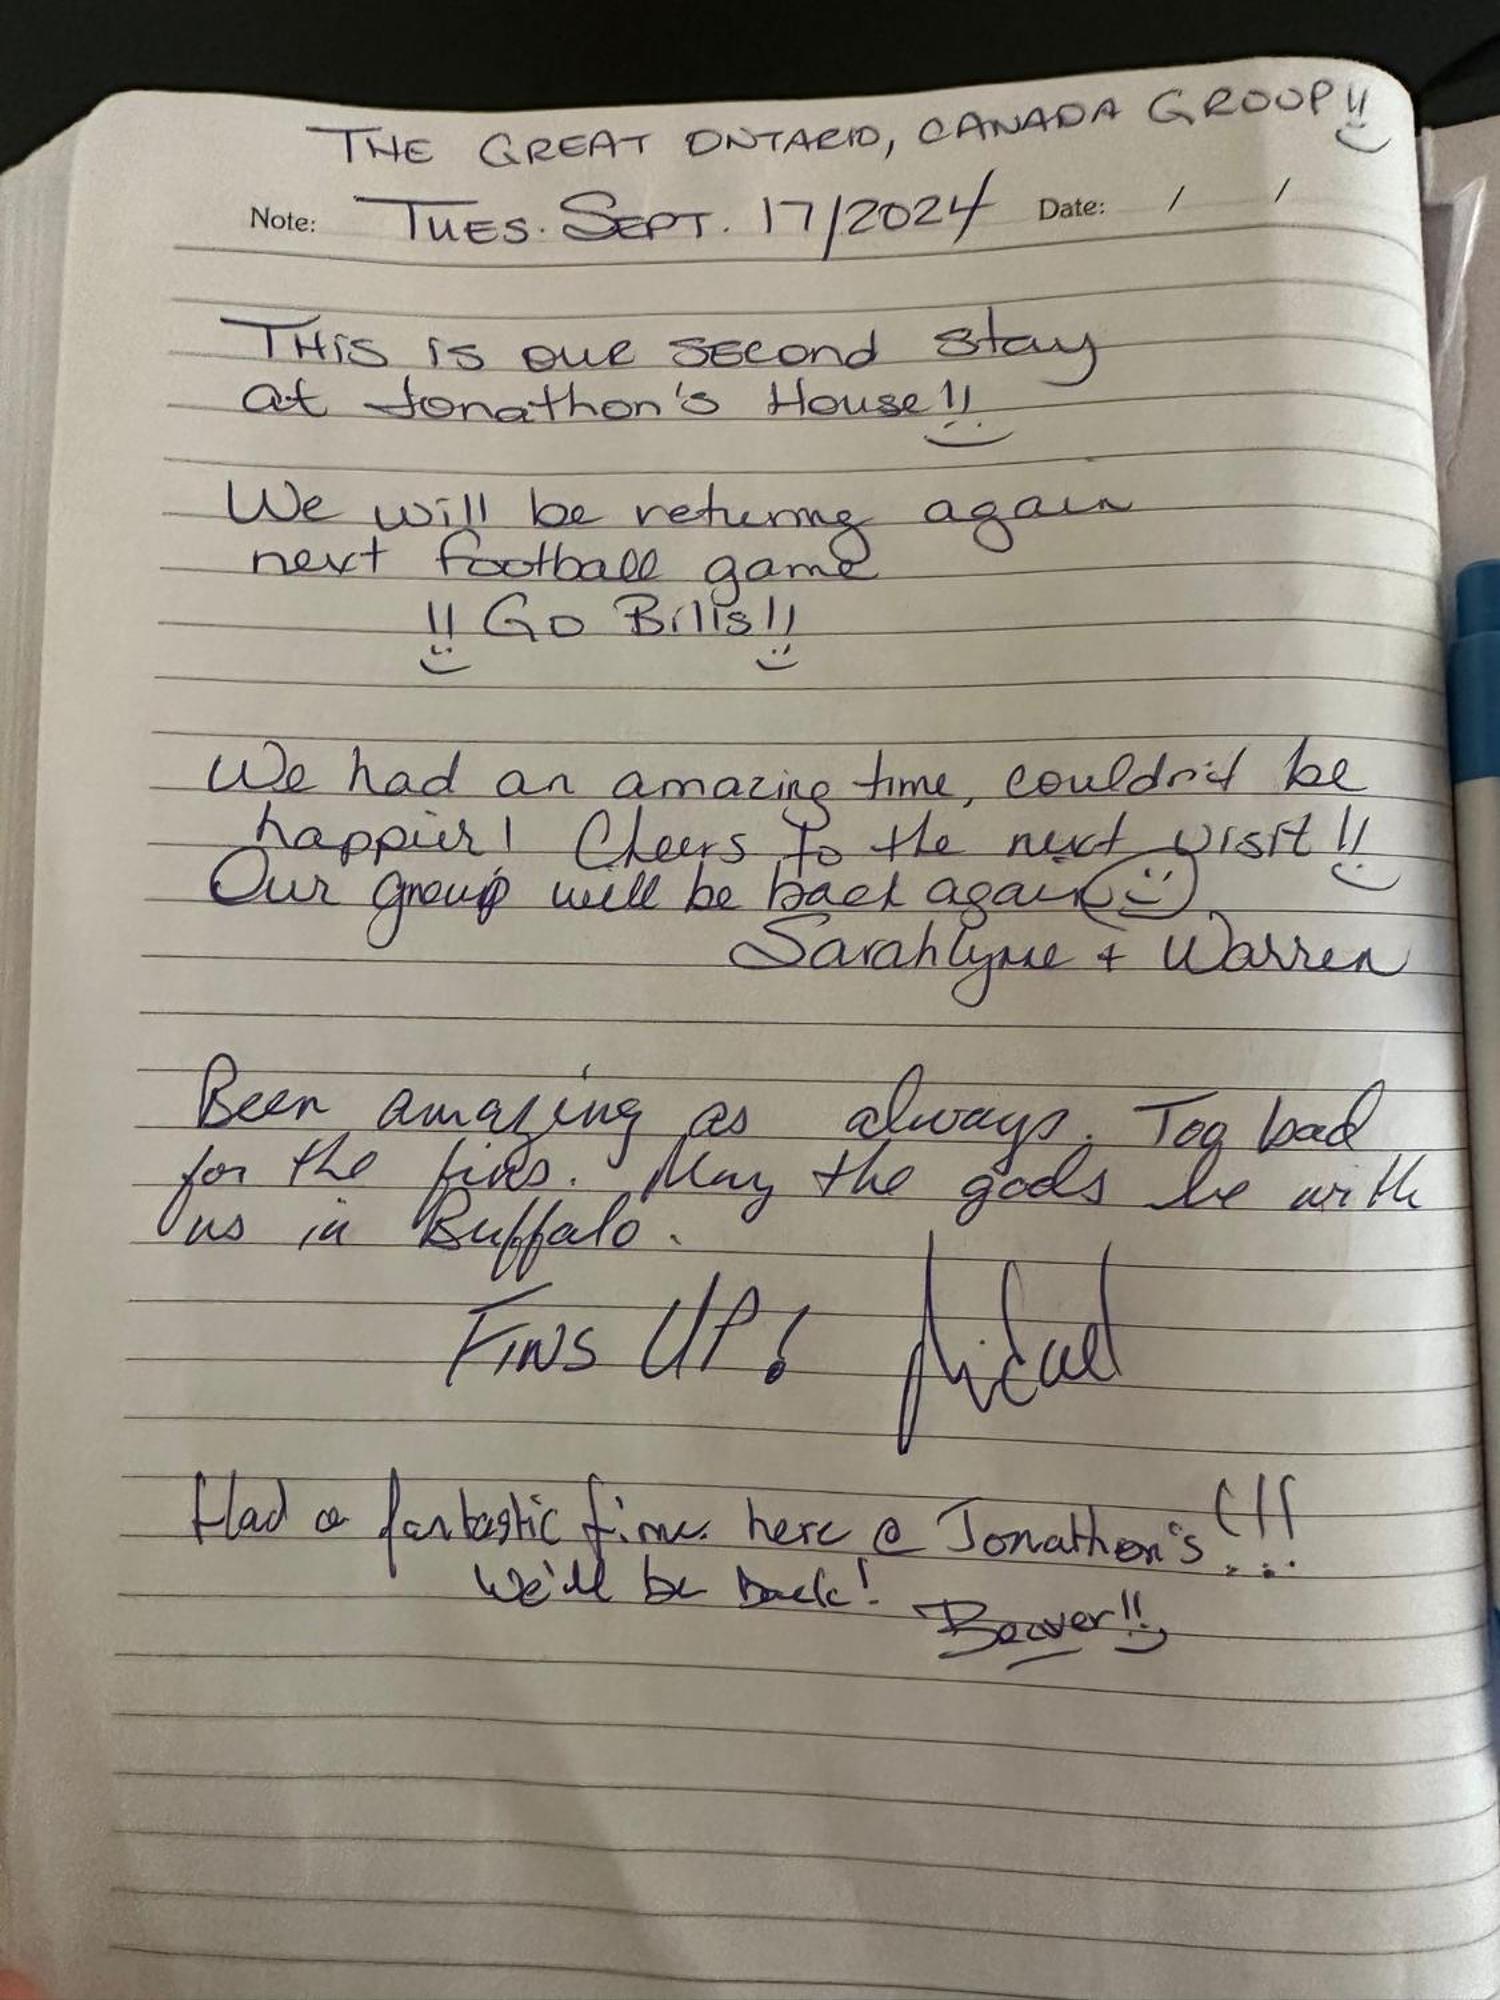 THE GREAT ONTARIO, CANADA GROUP!!
Note: TUES. SEPT. 17/2024 Date: / /
THIS IS OUR SECOND stay
at Jonathon's House!!
We will be returng again
next football game
!! GO Bills!!
We had an amazing time, couldn't be
happier! Cheers to the next visit!!
Our group will be back again
Sarahlynne + Warren
Been amazing as always. Too bad
for the fins. May the gods be with
us in Buffalo.
FINS UP! Michael
Had a fantastic time here @ Jonathon's!!!
We'll be back!
Beaver!!